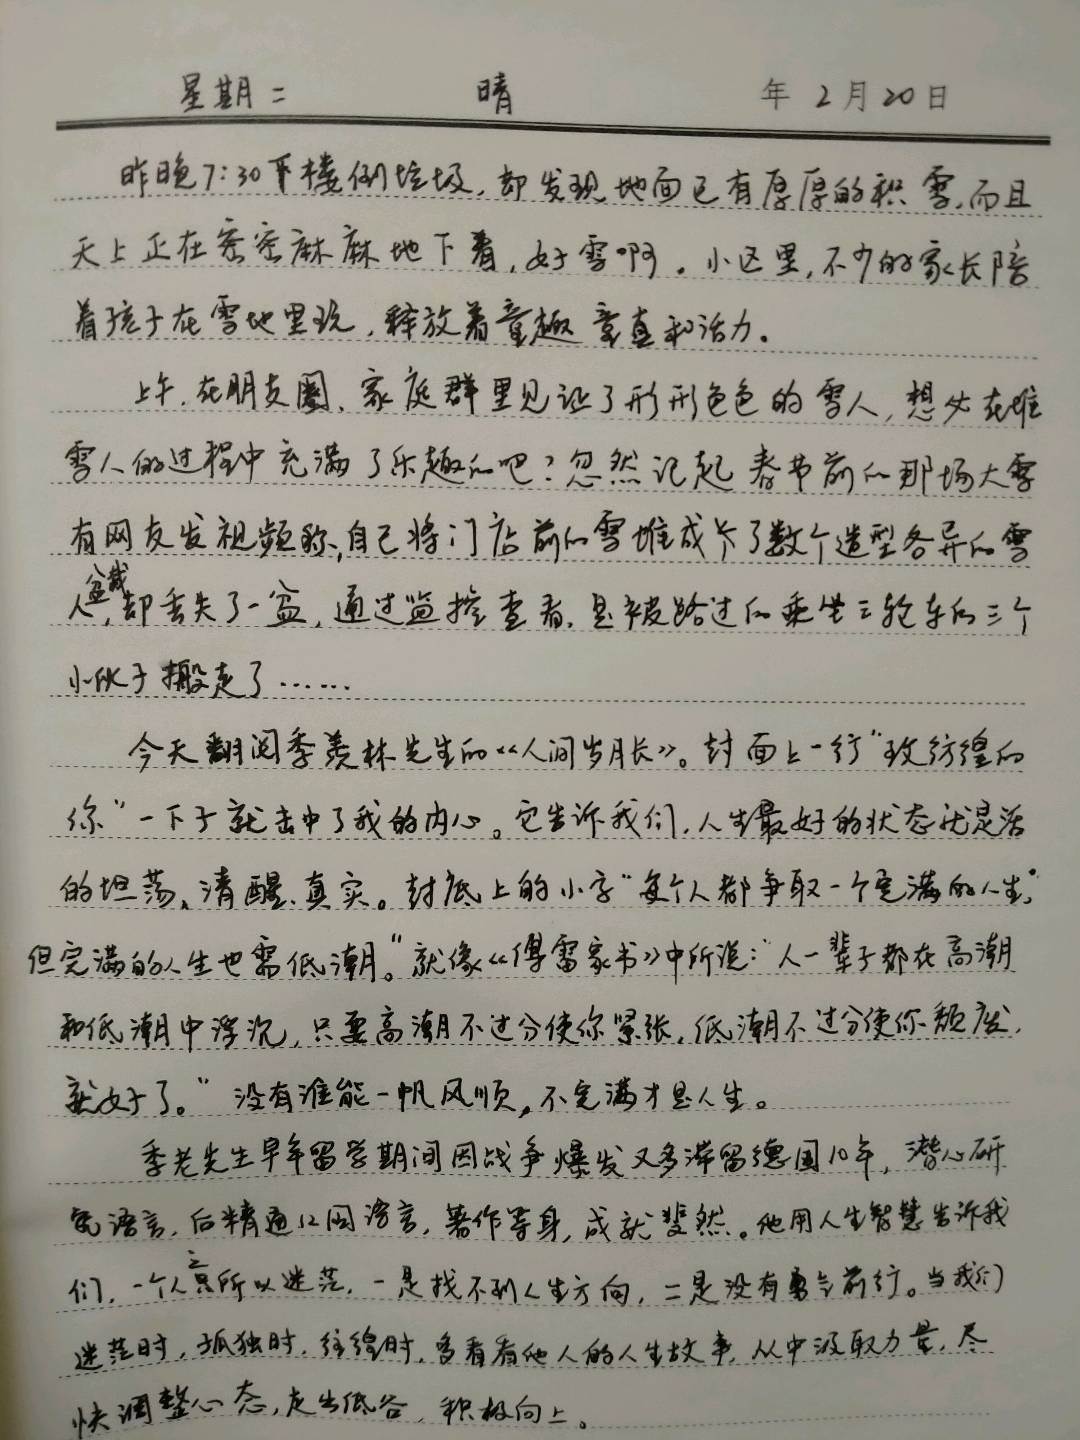 星期二 晴 年 2月20日
昨晚7:30下楼倒垃圾，却发现地面已有厚厚的积雪，而且
天上正在密密麻麻地下着，好雪啊。小区里，不少的家长陪
着孩子在雪地里玩，释放着童趣童真和活力。
上午，在朋友圈、家庭群里见证了形形色色的雪人，想必在堆
雪人的过程中充满了乐趣的吧？忽然记起春节前的那场大雪
有网友发视频称，自己将门店前的雪堆成了数个造型各异的雪
人盆栽，却丢失了一盆，通过监控查看，是被路过的乘坐三轮车的三个
小伙子搬走了……
今天翻阅季羡林先生的《人间岁月长》。封面上一行“致彷徨的
你”一下子就击中了我的内心。它告诉我们，人生最好的状态就是活
的坦荡、清醒、真实。封底上的小字“每个人都争取一个完满的人生，
但完满的人生也需低潮。”就像《傅雷家书》中所说：“人一辈子都在高潮
和低潮中浮沉，只要高潮不过分使你紧张，低潮不过分使你颓废，
就好了。”没有谁能一帆风顺，不完满才是人生。
季老先生早年留学期间因战争爆发又多滞留德国10年，潜心研
究语言，后精通12国语言，著作等身，成就斐然。他用人生智慧告诉我
们，一个人之所以迷茫，一是找不到人生方向，二是没有勇气前行。当我们
迷茫时，孤独时，彷徨时，多看看他人的人生故事，从中汲取力量，尽
快调整心态，走出低谷，积极向上。